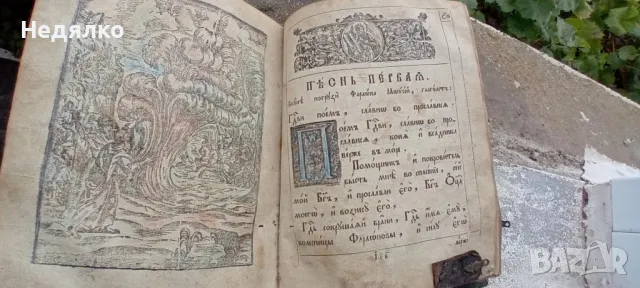 Недялко
ПѢСНЬ ПЕРВАѦ.
погрꙋзи Фараѡна Мѡѵсей, глаголетъ:
Гдⷭ҇ви поемъ, славнѡ бо прослависѧ:
Поемъ Гдⷭ҇ви, славнѡ бо про-
слависѧ, конѧ и всадника
вверже въ море.
Помощникъ и покровитель
бысть мнѣ во спасеніе, сей
мой Бг҃ъ, и прославлю є҆го, Бг҃ъ Ѻц҃а
моегѡ, и вознесꙋ є҆го,
Гдⷭ҇ь сокрꙋшаѧй брани, Гдⷭ҇ь имѧ є҆мꙋ,
колесницы Фараѡновы, и силꙋ є҆гѡ
вверже
bazar